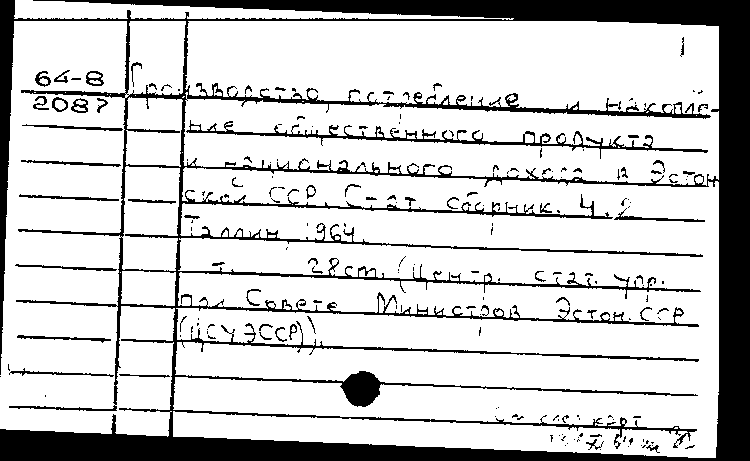 64-8
2087
Производство, потребление и накопле-
ние общественного продукта
и национального дохода в Эстон
ской ССР. Стат. сборник. Ч. 2
Таллин, 1964.
т. 28 cm. (Центр. стат. упр.
при Совете Министров Эстон. ССР
(ЦСУ ЭССР)).
См след карт